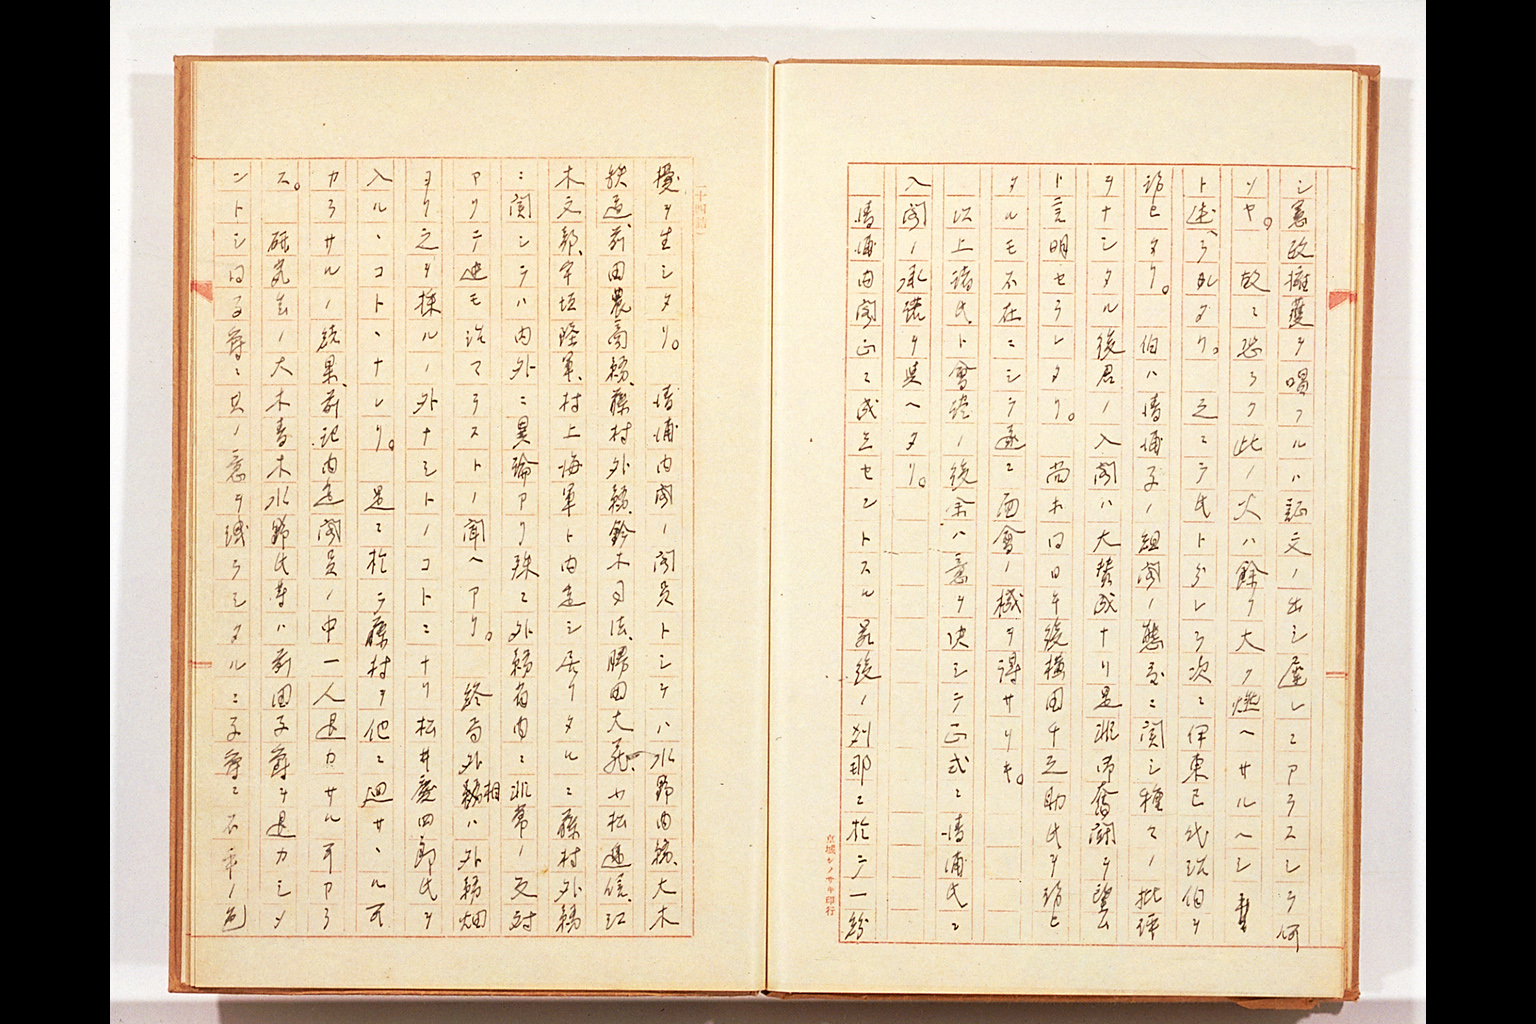 シ憲政擁護ヲ唱フルハ証文ノ出シ遅レニアラスシテ何
ソヤ。故ニ恐ラク此ノ火ハ餘リ大ク燃ヘサルヘシ
ト述ヘラレタリ。之ニテ氏ト分レテ次ニ伊東巳代治伯ヲ
訪ヒタリ。伯ハ清浦子ノ組閣ノ態度ニ関シ種々ノ批評
ヲナシタル後君ノ入閣ハ大賛成ナリ是非御奮闘ヲ望ム
ト言明セラレタリ。尚ホ同日午後横田千之助氏ヲ訪ヒ
タルモ不在ニシテ遂ニ面會ノ機ヲ得サリキ。
以上諸氏ト會談ノ後余ハ意ヲ決シテ正式ニ清浦氏ニ
入閣ノ承諾ヲ與ヘタリ。
清浦内閣正ニ成立セントスル最後ノ刹那ニ於テ一紛
京城シノサキ印行
擾ヲ生シタリ。清浦内閣ノ閣員トシテハ水野内務、大木
鉄道、前田農商務、藤村外務、鈴木司法、勝田大蔵、小松逓信、江
木文部、宇垣陸軍、村上海軍ト内定シ居リタルニ藤村外務
ニ関シテハ内外ニ異論アリ殊ニ外務省内ニ非常ノ反対
アリテ迚モ治マラストノ聞ヘアリ。終局外務相ハ外務畑
ヨリ之ヲ採ルノ外ナシトノコトニナリ松井慶四郎氏ヲ
入ルヽコトヽナレリ。是ニ於テ藤村ヲ他ニ廻サヽル可
カラサルノ結果、前記内定閣員ノ中一人退カサル可アラ
ス。研究会ノ大木青木水野氏等ハ前田子爵ヲ退カシメ
ントシ同子爵ニ其ノ意ヲ